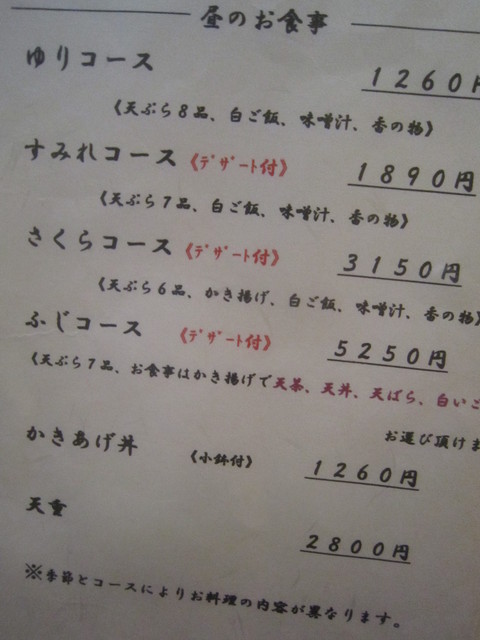 昼のお食事
ゆりコース 1260円
《天ぷら8品、白ご飯、味噌汁、香の物》
すみれコース 《デザート付》 1890円
《天ぷら7品、白ご飯、味噌汁、香の物》
さくらコース 《デザート付》 3150円
《天ぷら6品、かき揚げ、白ご飯、味噌汁、香の物》
ふじコース 《デザート付》 5250円
《天ぷら7品、お食事はかき揚げで天茶、天丼、天ばら、白いご
お選び頂けま
かきあげ丼 《小鉢付》 1260円
天重 2800円
※季節とコースによりお料理の内容が異なります。